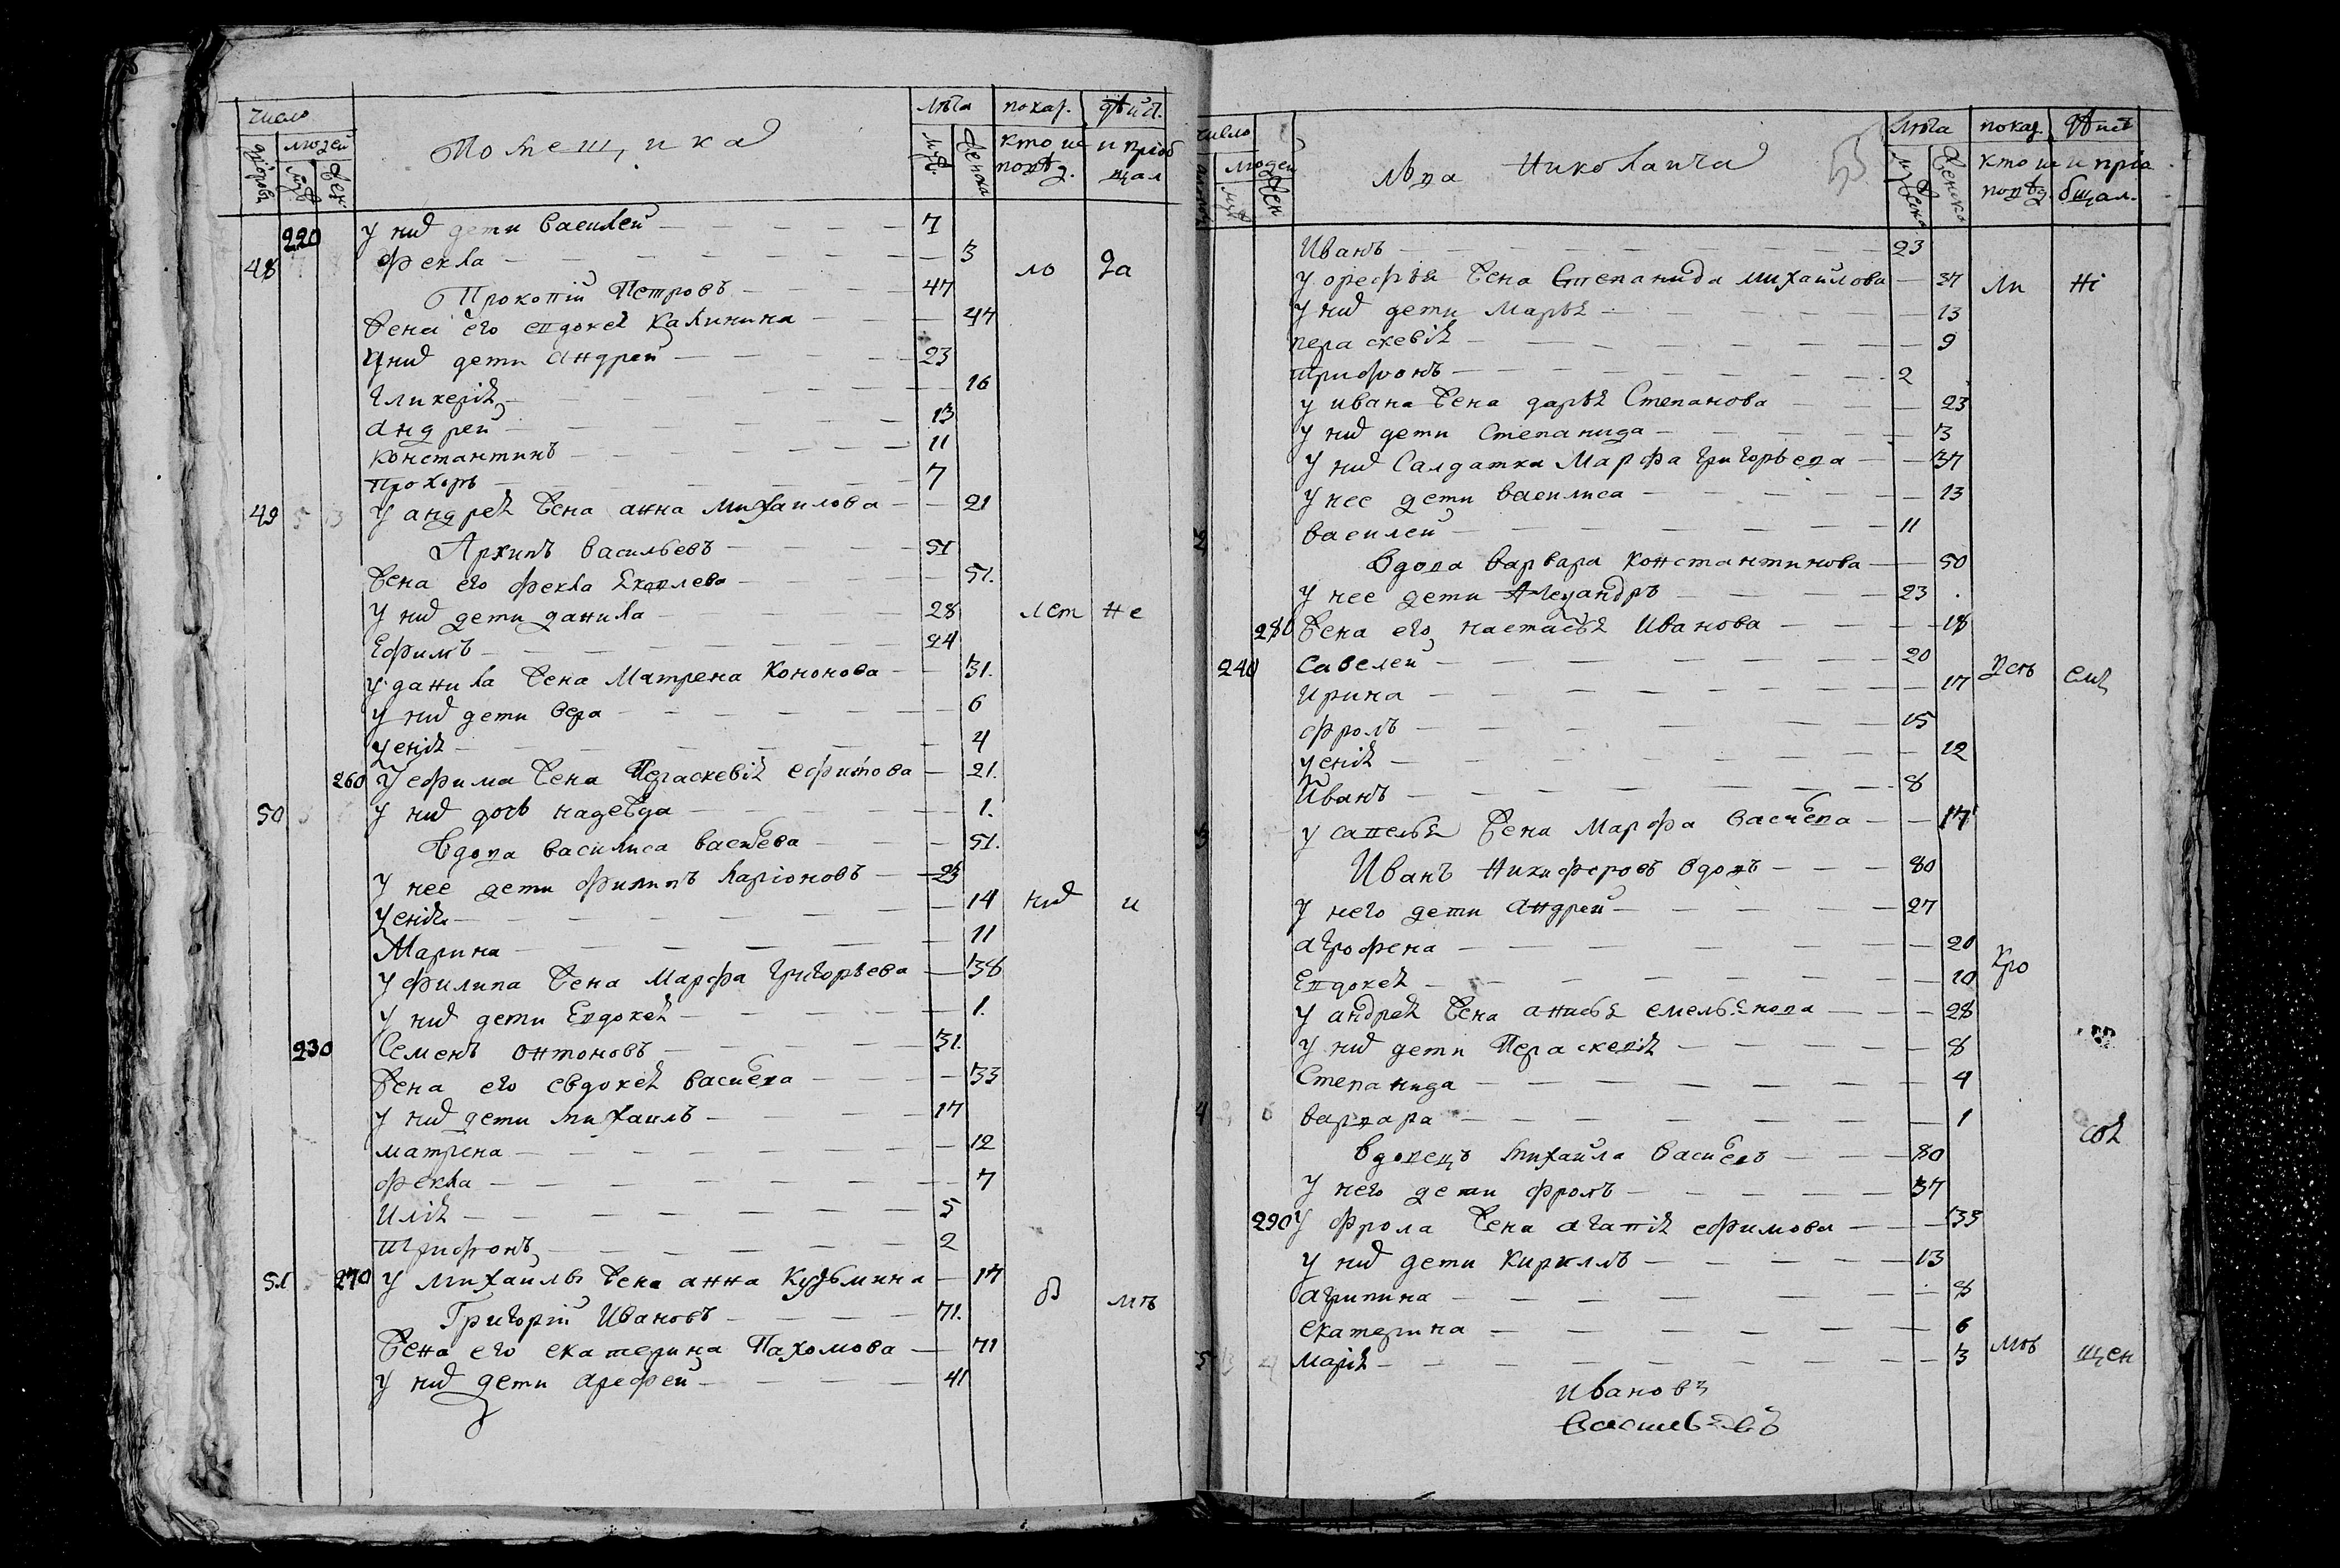 число
лѣта
показ.
дѣйст.
дворовъ
людей
муж
жен
Помещика
муж.
женска
кто исповѣд.
и приобщал
220 у них дети Василей 7
48 Фекла 3 ло да
Прокопий Петровъ 47
Жена его евдокея Калинина 47
у них дети андрей 23
гликерия 16
андрей 13
константинъ 11
прохоръ 7
49 У андрея жена анна михаилова 21
Архипъ Васильевъ 51
Жена его фекла Яковлева 51.
У них дети данила 28 лет не
Ефимъ 24
у данила жена Матрена Кононова 31.
у них дети вера 6
ксения 4
260 У ефима жена Пераскевия ефимова 21.
50 у них дочь надежда 1.
Вдова василиса васильева 51.
У нее дети филипъ ларионовъ 23
ксения 14 них и
Марина 11
у филипа жена Марфа Григорьева 38
у них дети Евдокея 1.
230 Семенъ онтоновъ 31.
Жена его евдокея васильева 33
у них дети михаилъ 17
матрена 12
фекла 7
Илия 5
трифонъ 2
51 270 у михаилы жена анна Кузьмина 17
Григорий Ивановъ 71. в мъ
Жена его екатерина Пахомова 71
у них дети арефей 41
число
людей
муж
жен
лва Николаича
53
лѣта
показ.
дѣйст
мужеска
женска
кто исповѣд.
и приобщал.
Иванъ 23
у орефья жена Степанида михайлова 37 ли ні
У них дети Марья 13
пераскевия 9
трифонъ 2
у ивана жена дарья Степанова 23
у них дети Степанида 3
У них Салдатка Марфа григорьева 37
у нее дети василиса 13
василей 11
Вдова Варвара константинова 50
у нее дети Александръ 23
280 жена его настасья Иванова 18
240 савелей 20
Ирина 17
фролъ 15
ксения 12
Иванъ 8
у савелья жена Марфа васильева 17
Иванъ Никифоровъ вдовъ 80
У него дети андрей 27
агрофена 20
Евдокея 10 кро
у андрея жена анисья емельянова 28
у них дети Пераскевия 8
Степанида 4
4 6 варвара 1
вдовецъ михайла васильевъ 80
у него дети фролъ 37
290 у фрола жена агапия ефимова 33
у них дети кирилъ 13
агрипина 8
екатерина 6
5 мария 3 мъ щен
Ивановъ
Васильевъ